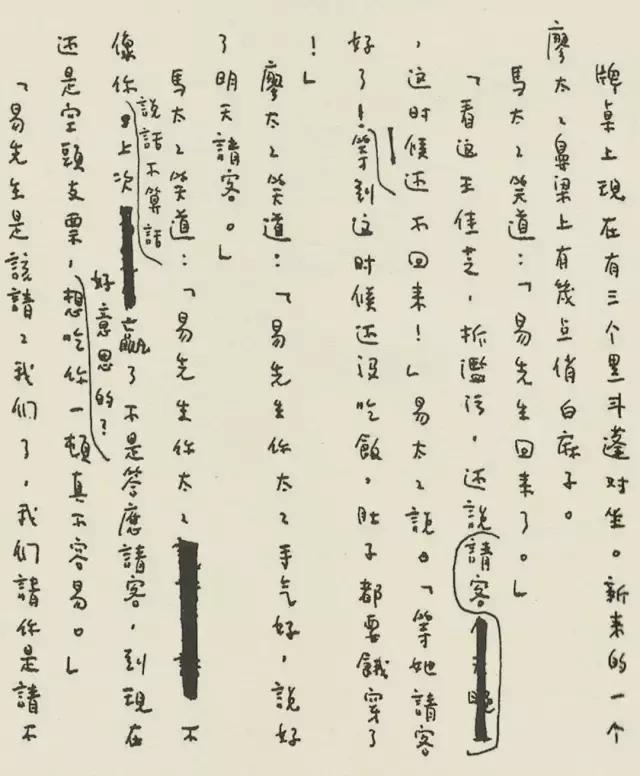 牌桌上現在有三个黑斗蓬对坐。新来的一个
廖太〻鼻梁上有幾点俏白麻子。
馬太〻笑道：「易先生回来了。」
「看这王佳芝，拆濫污，还說請客
，这时候还不回来！」易太〻說。「等她請客
好了！等到这时候还没吃飯，肚子都要餓穿了
！」
廖太〻笑道：「易先生你太〻手气好，說好
了明天請客。」
馬太〻笑道：「易先生你太〻不
說話不算話
像你上次贏了不是答應請客，到現在
好意思的？
还是空頭支票，想吃你一頓真不容易。」
「易先生是該請〻我们了，我们請你是請不